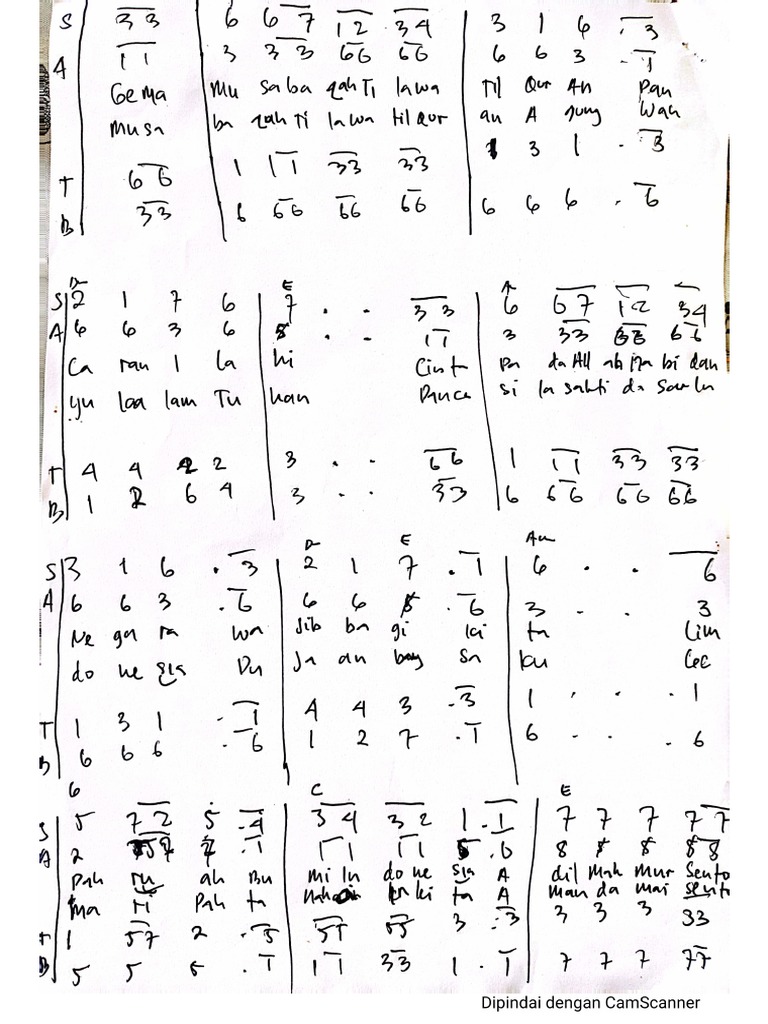 S 33 6 6 7 12 34 3 1 6 . 3
A 11 3 33 66 66 6 6 3 . 1
Gema Mu saba qahTi lawa Til Qur An Pan
Musa ba qahTi lawa tilQur an A gung Wah
1 11 33 33 1 3 1 . 3
T 66
B 33 6 66 66 66 6 6 6 . 6
D E A
S 2 1 7 6 7 . . 33 6 67 12 34
A 6 6 3 6 8 . . 11 3 33 66
Ca ran I la hi Cinta Pa da All ah bi dan
yu laa lam Tu han Panca si la sakti da
T 4 4 2 2 3 . . 66 1 11 33 33
B 1 2 6 4 3 . . 33 6 66 66 66
D E Am
S 3 1 6 . 3 2 1 7 . 1 6 . . 6
A 6 6 3 . 6 6 6 . 6 3 . . 3
Ne ga ra wa jib ba gi ki ta Lim
do ne sia Du Ja an sa ku
T 1 3 1 . 1 4 4 3 . 3 1 . . . 1
B 6 6 6 . 6 1 2 7 . 1 6 . . . 6
6 C E
S 5 72 5 . 4 34 32 1 . 1 7 7 7 77
A 2 . 1 11 11 . 6 8 8 8 88
Pah ru ah Bu mi In do ne sia A dil Mak Mur Sento
Ma ri Pah ta ki ta A man da mai
T 1 57 2 . 5 51 55 3 . 3 3 3 3 33
B 5 5 5 . 1 11 33 1 . 1 7 7 7 77
Dipindai dengan CamScanner